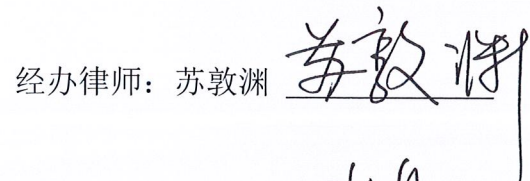 经办律师：苏敦渊 苏敦渊